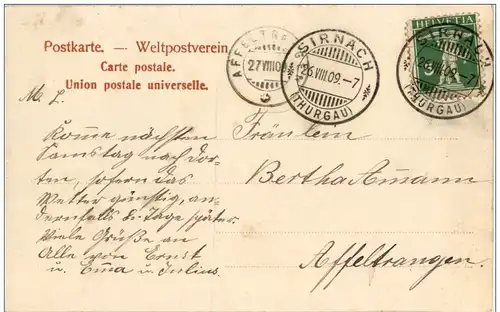 Postkarte. — Weltpostverein
Carte postale.
Union postale universelle.
AFFELTRA
27 VIII 09
SIRNACH
26 VIII 09.-7
(THURGAU)
HELVETIA
SIRNACH
26 VIII 09.-7
(THURGAU)
M. L.
Komme nächsten
Samstag nach dor-
ten, sofern das
Wetter günstig, an-
dernfalls 8 Tage später.
Viele Grüße an
Alle von Ernst
u. Emma u. Julius.
Fräulein
Bertha Amann
Affeltrangen.